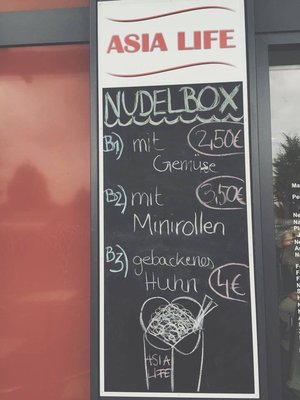 ASIA LIFE
NUDELBOX
B1) mit 2,50€
Gemüse
B2) mit 3,50€
Minirollen
B3) gebackenes
Huhn 4€
ASIA
LIFE